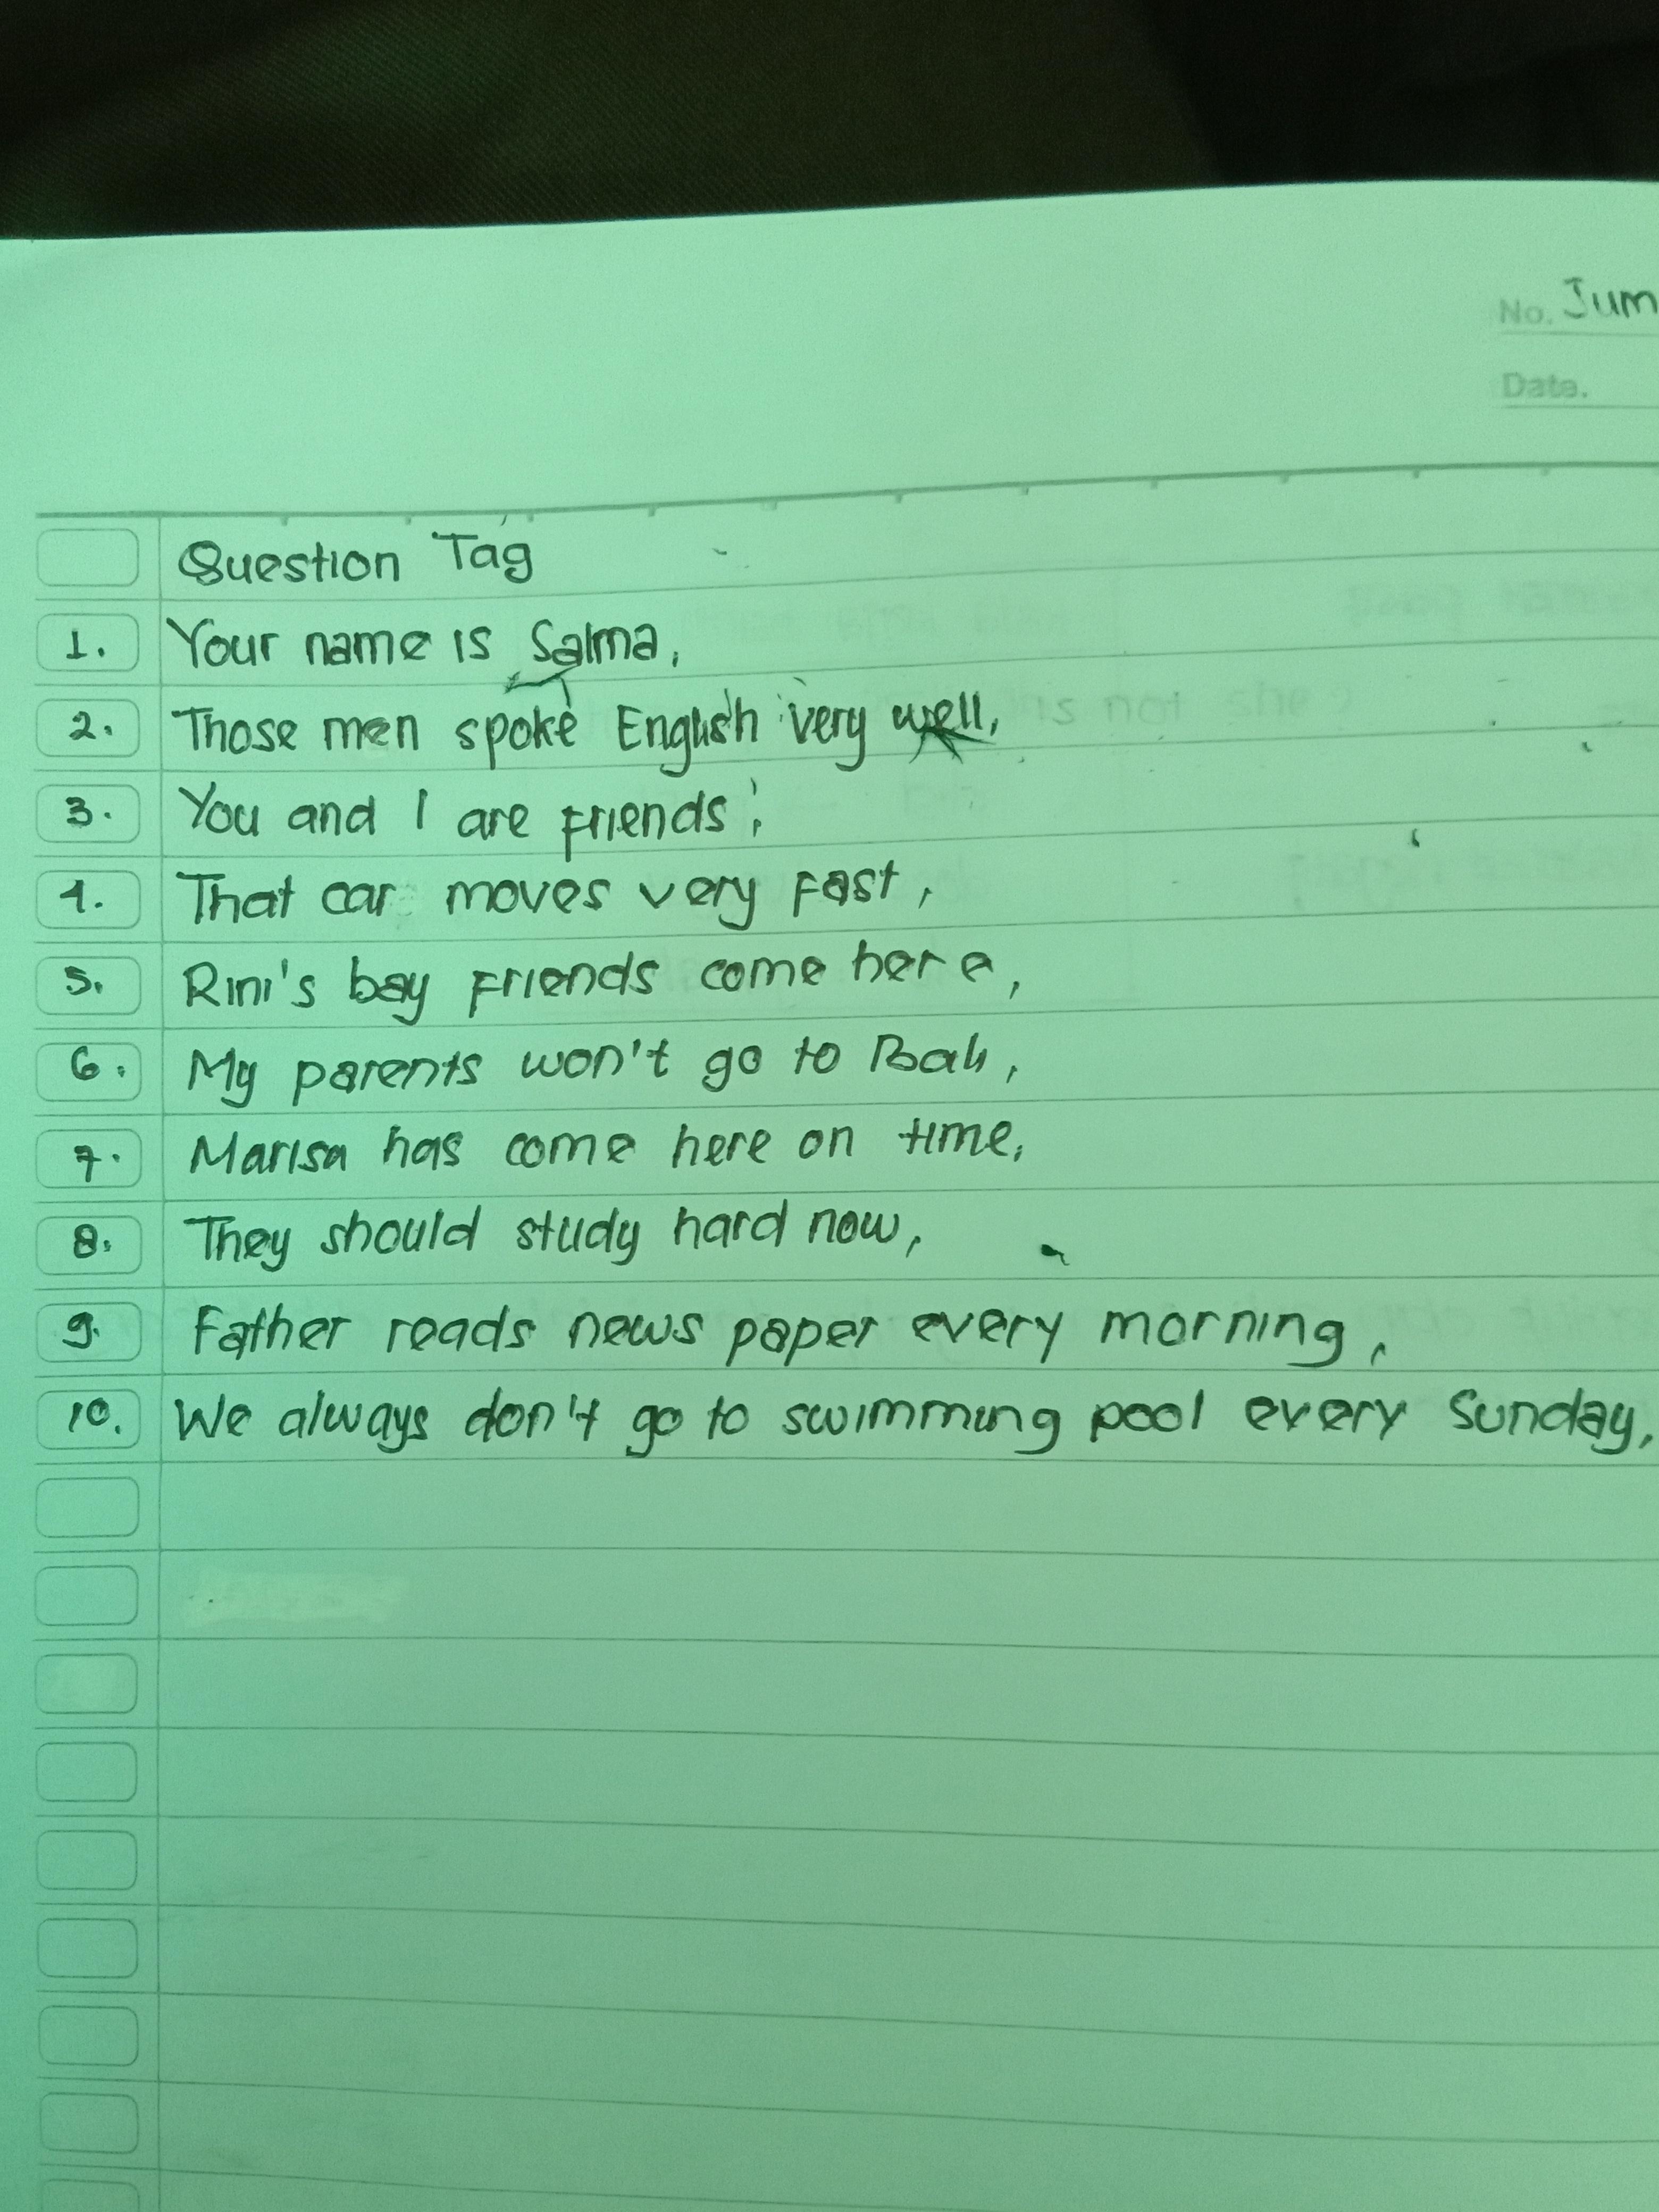 No. Jum
Date.
Question Tag
1. Your name is Salma,
2. Those men spoke English very well,
3. You and I are friends,
4. That car moves very fast,
5. Rini's bay friends come here,
6. My parents won't go to Bali,
7. Marisa has come here on time,
8. They should study hard now,
9. Father reads news paper every morning,
10. We always don't go to swimming pool every Sunday,